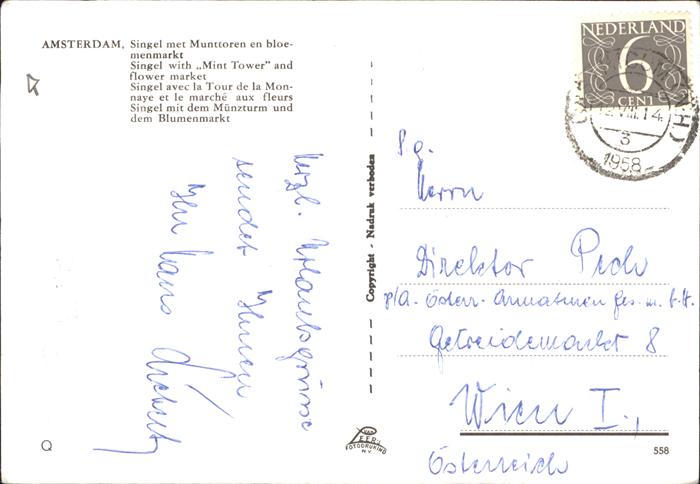 AMSTERDAM, Singel met Munttoren en bloe-
menmarkt
Singel with „Mint Tower” and
flower market
Singel avec la Tour de la Mon-
naye et le marché aux fleurs
Singel mit dem Münzturm und
dem Blumenmarkt
Herzl. Urlaubsgrüsse
sendet Ihnen
Ihr Hans
Copyright - Nadruk verboden
NEDERLAND
6
CENT
VIII. 14.
3
1958
Herrn
Direktor
p/A. Österr. Armaturen Ges. m. b. H.
Getreidemarkt 8
Wien I.,
Österreich
VAN
LEER'S
FOTODRUKIND
N.V.
Q
558